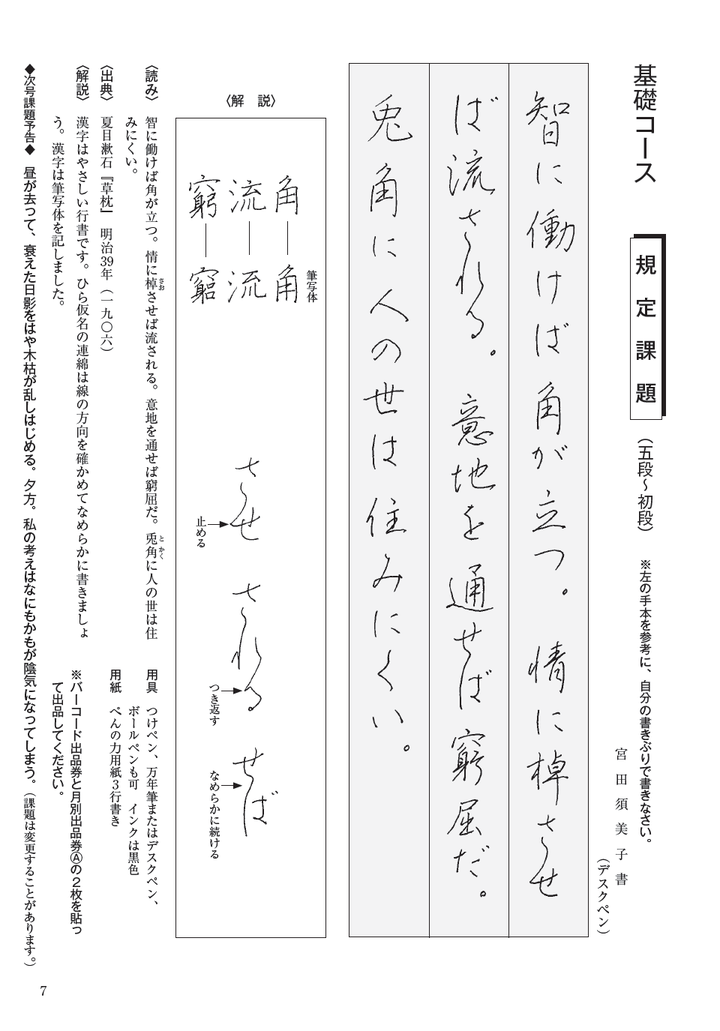 基礎コース
規定課題
(五段〜初段)
※左の手本を参考に、自分の書きぶりで書きなさい。
宮田須美子書
(デスクペン)
智に働けば角が立つ。情に棹させ
ば流される。意地を通せば窮屈だ。
兎角に人の世は住みにくい。
〈解説〉
筆写体
角―角
流―流
窮―窮
させ
止める
される
つき返す
せば
なめらかに続ける
〈読み〉 智に働けば角が立つ。情に棹させば流される。意地を通せば窮屈だ。兎角に人の世は住
さお
とかく
みにくい。
〈出典〉 夏目漱石『草枕』 明治39年(一九〇六)
〈解説〉 漢字はやさしい行書です。ひら仮名の連綿は線の方向を確かめてなめらかに書きましょ
う。漢字は筆写体を記しました。
用具 つけペン、万年筆またはデスクペン、
ボールペンも可 インクは黒色
用紙 ぺんの力用紙3行書き
※バーコード出品券と月別出品券Ⓐの2枚を貼っ
て出品してください。
◆次号課題予告◆ 昼が去って、衰えた日影をはや木枯が乱しはじめる。夕方。私の考えはなにもかもが陰気になってしまう。(課題は変更することがあります。)
7